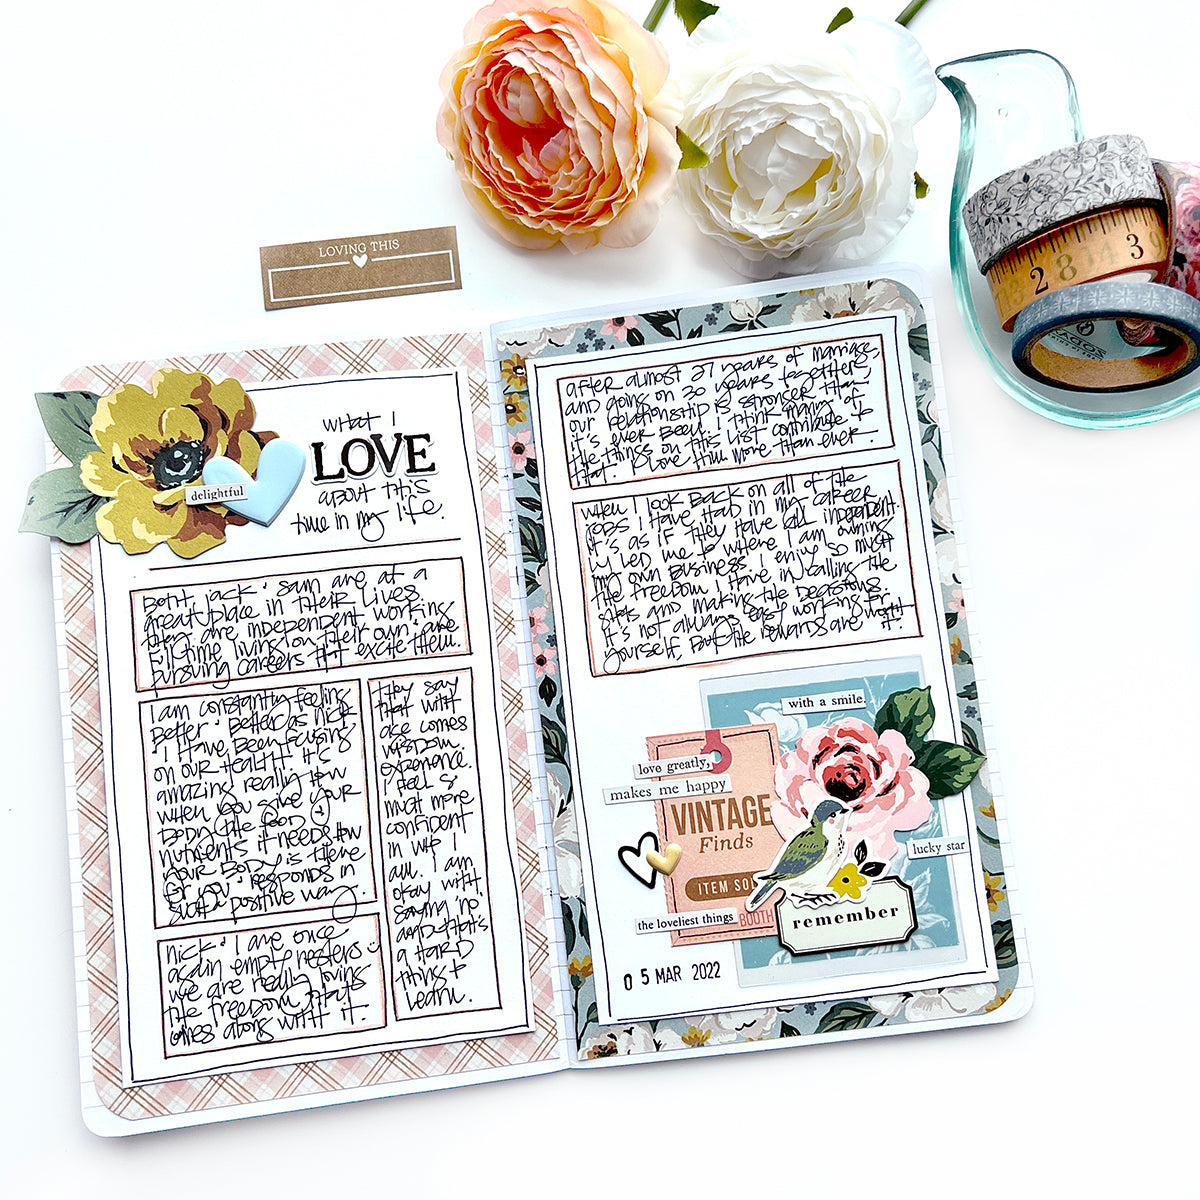 LOVING THIS
What I
LOVE
about this
time in my life.
delightful
Both Jack + Sam are at a
great place in their lives.
They are independent, working
full time, living on their own + are
pursuing careers that excite them.
I am constantly feeling
better + better as Nick
+ I have been focusing
on our health. It's
amazing really how
when you give your
body the food +
nutrients it needs how
your body is there
for you + responds in
such a positive way.
They say
that with
age comes
wisdom +
experience.
I feel so
much more
confident
in who I
am. I am
okay with
saying 'no'
and that's
a hard
thing to
learn.
Nick + I are once
again empty nesters :)
We are really loving
the freedom that
comes along with it.
After almost 27 years of marriage,
and going on 30 years together,
our relationship is stronger than
it's ever been. I think many of
the things on this list contribute to
that. I love him more than ever.
When I look back on all of the
jobs I have had in my career
it's as if they have all independent
ly led me to where I am owning
my own business. I enjoy so much
the freedom I have in calling the
shots and making the decisions.
It's not always easy working for
yourself, but the rewards are worth
it.
with a smile.
love greatly,
makes me happy
VINTAGE
Finds
ITEM SOL
lucky star
the loveliest things
BOOTH
remember
05 MAR 2022
2 8 14 3 9